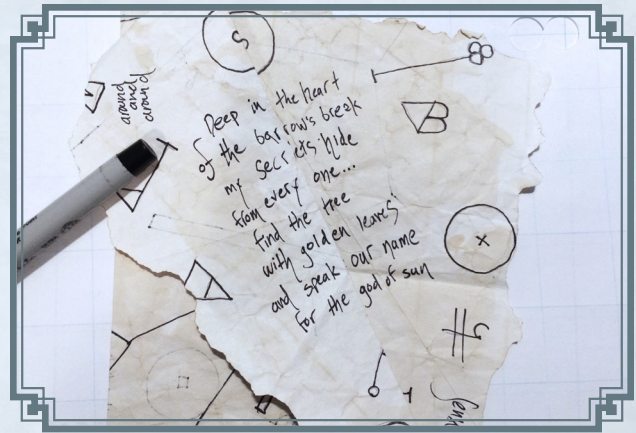 S
around
and
around
Deep in the heart
of the barrow's break
my secrets hide
from every one...
find the tree
with golden leaves
and speak our name
for the god of sun
B
x